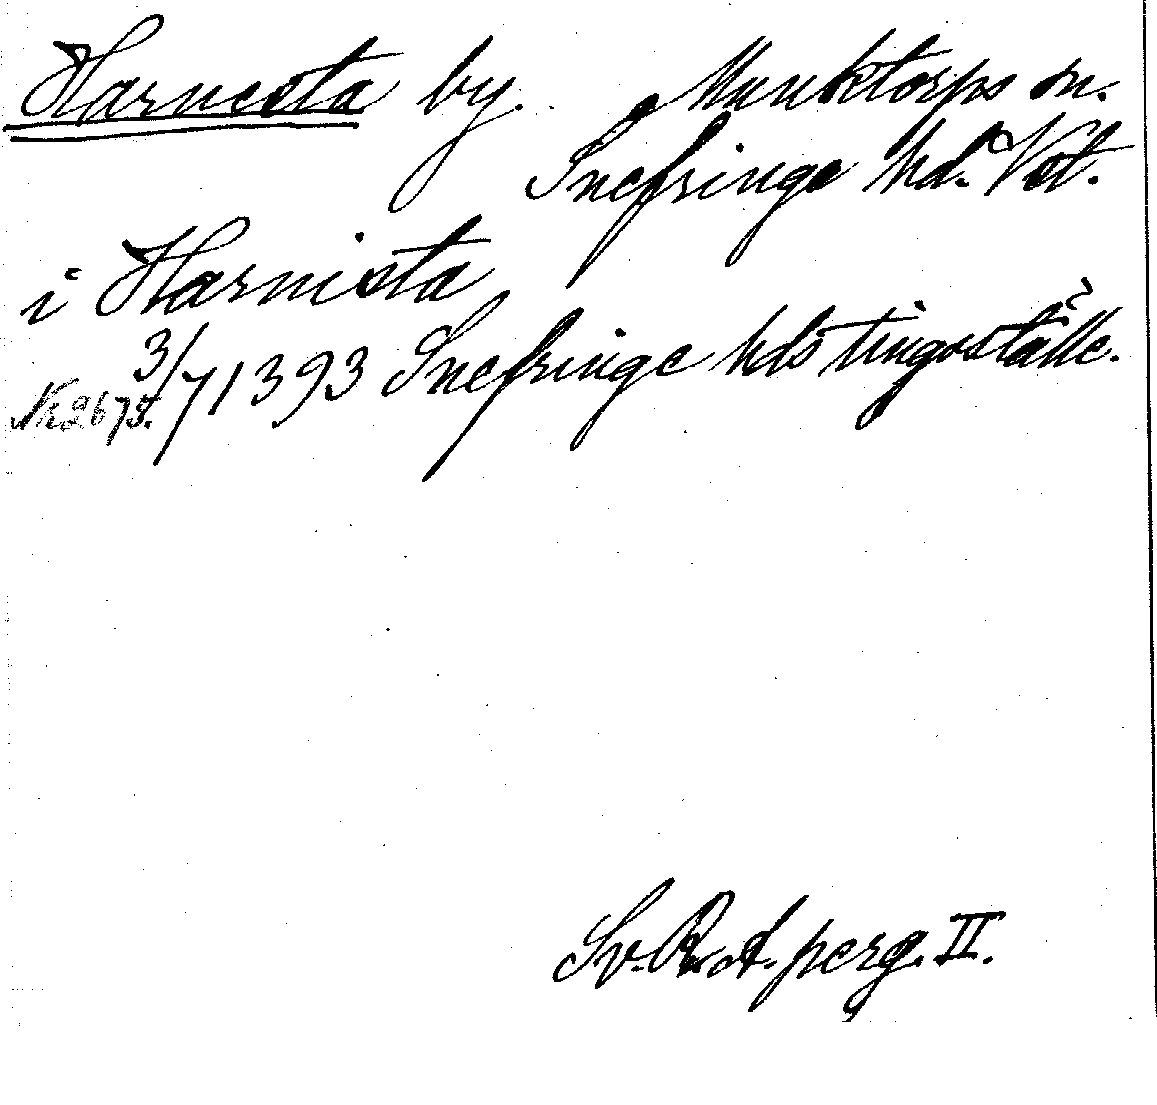 Harnesta by. Munktorps sn.
Snefringe hd. Vstl.
i Harnista
3/7 1393 Snefringe hds tingsställe.
Nr 2675.
Sv. R. A. perg. II.